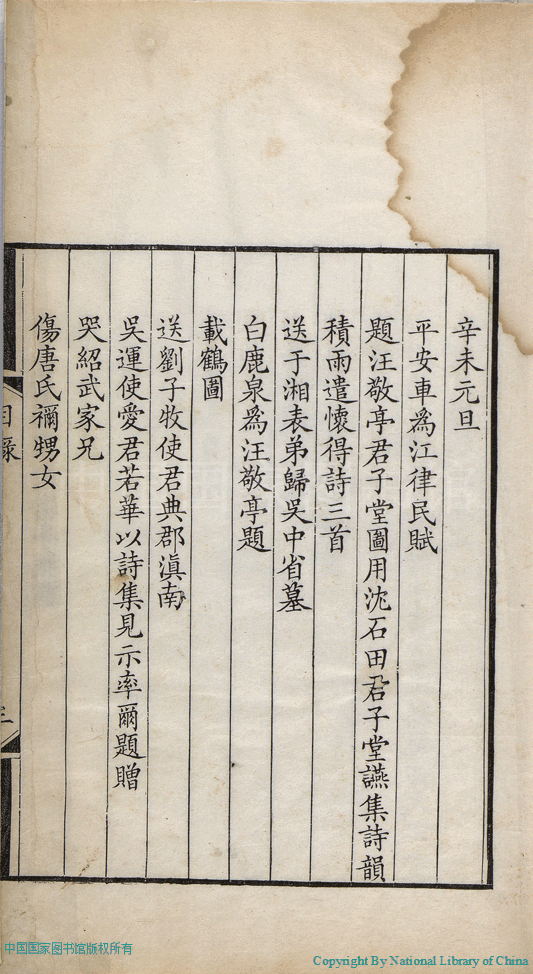 辛未元旦
平安車爲江律民賦
題汪敬亭君子堂圖用沈石田君子堂讌集詩韻
積雨遣懷得詩三首
送于湘表弟歸吳中省墓
白鹿泉爲汪敬亭題
載鶴圖
送劉子牧使君典郡滇南
吳運使愛君若華以詩集見示率爾題贈
哭紹武家兄
傷唐氏禰甥女
目錄
三
中国国家图书馆版权所有
Copyright By National Library of China